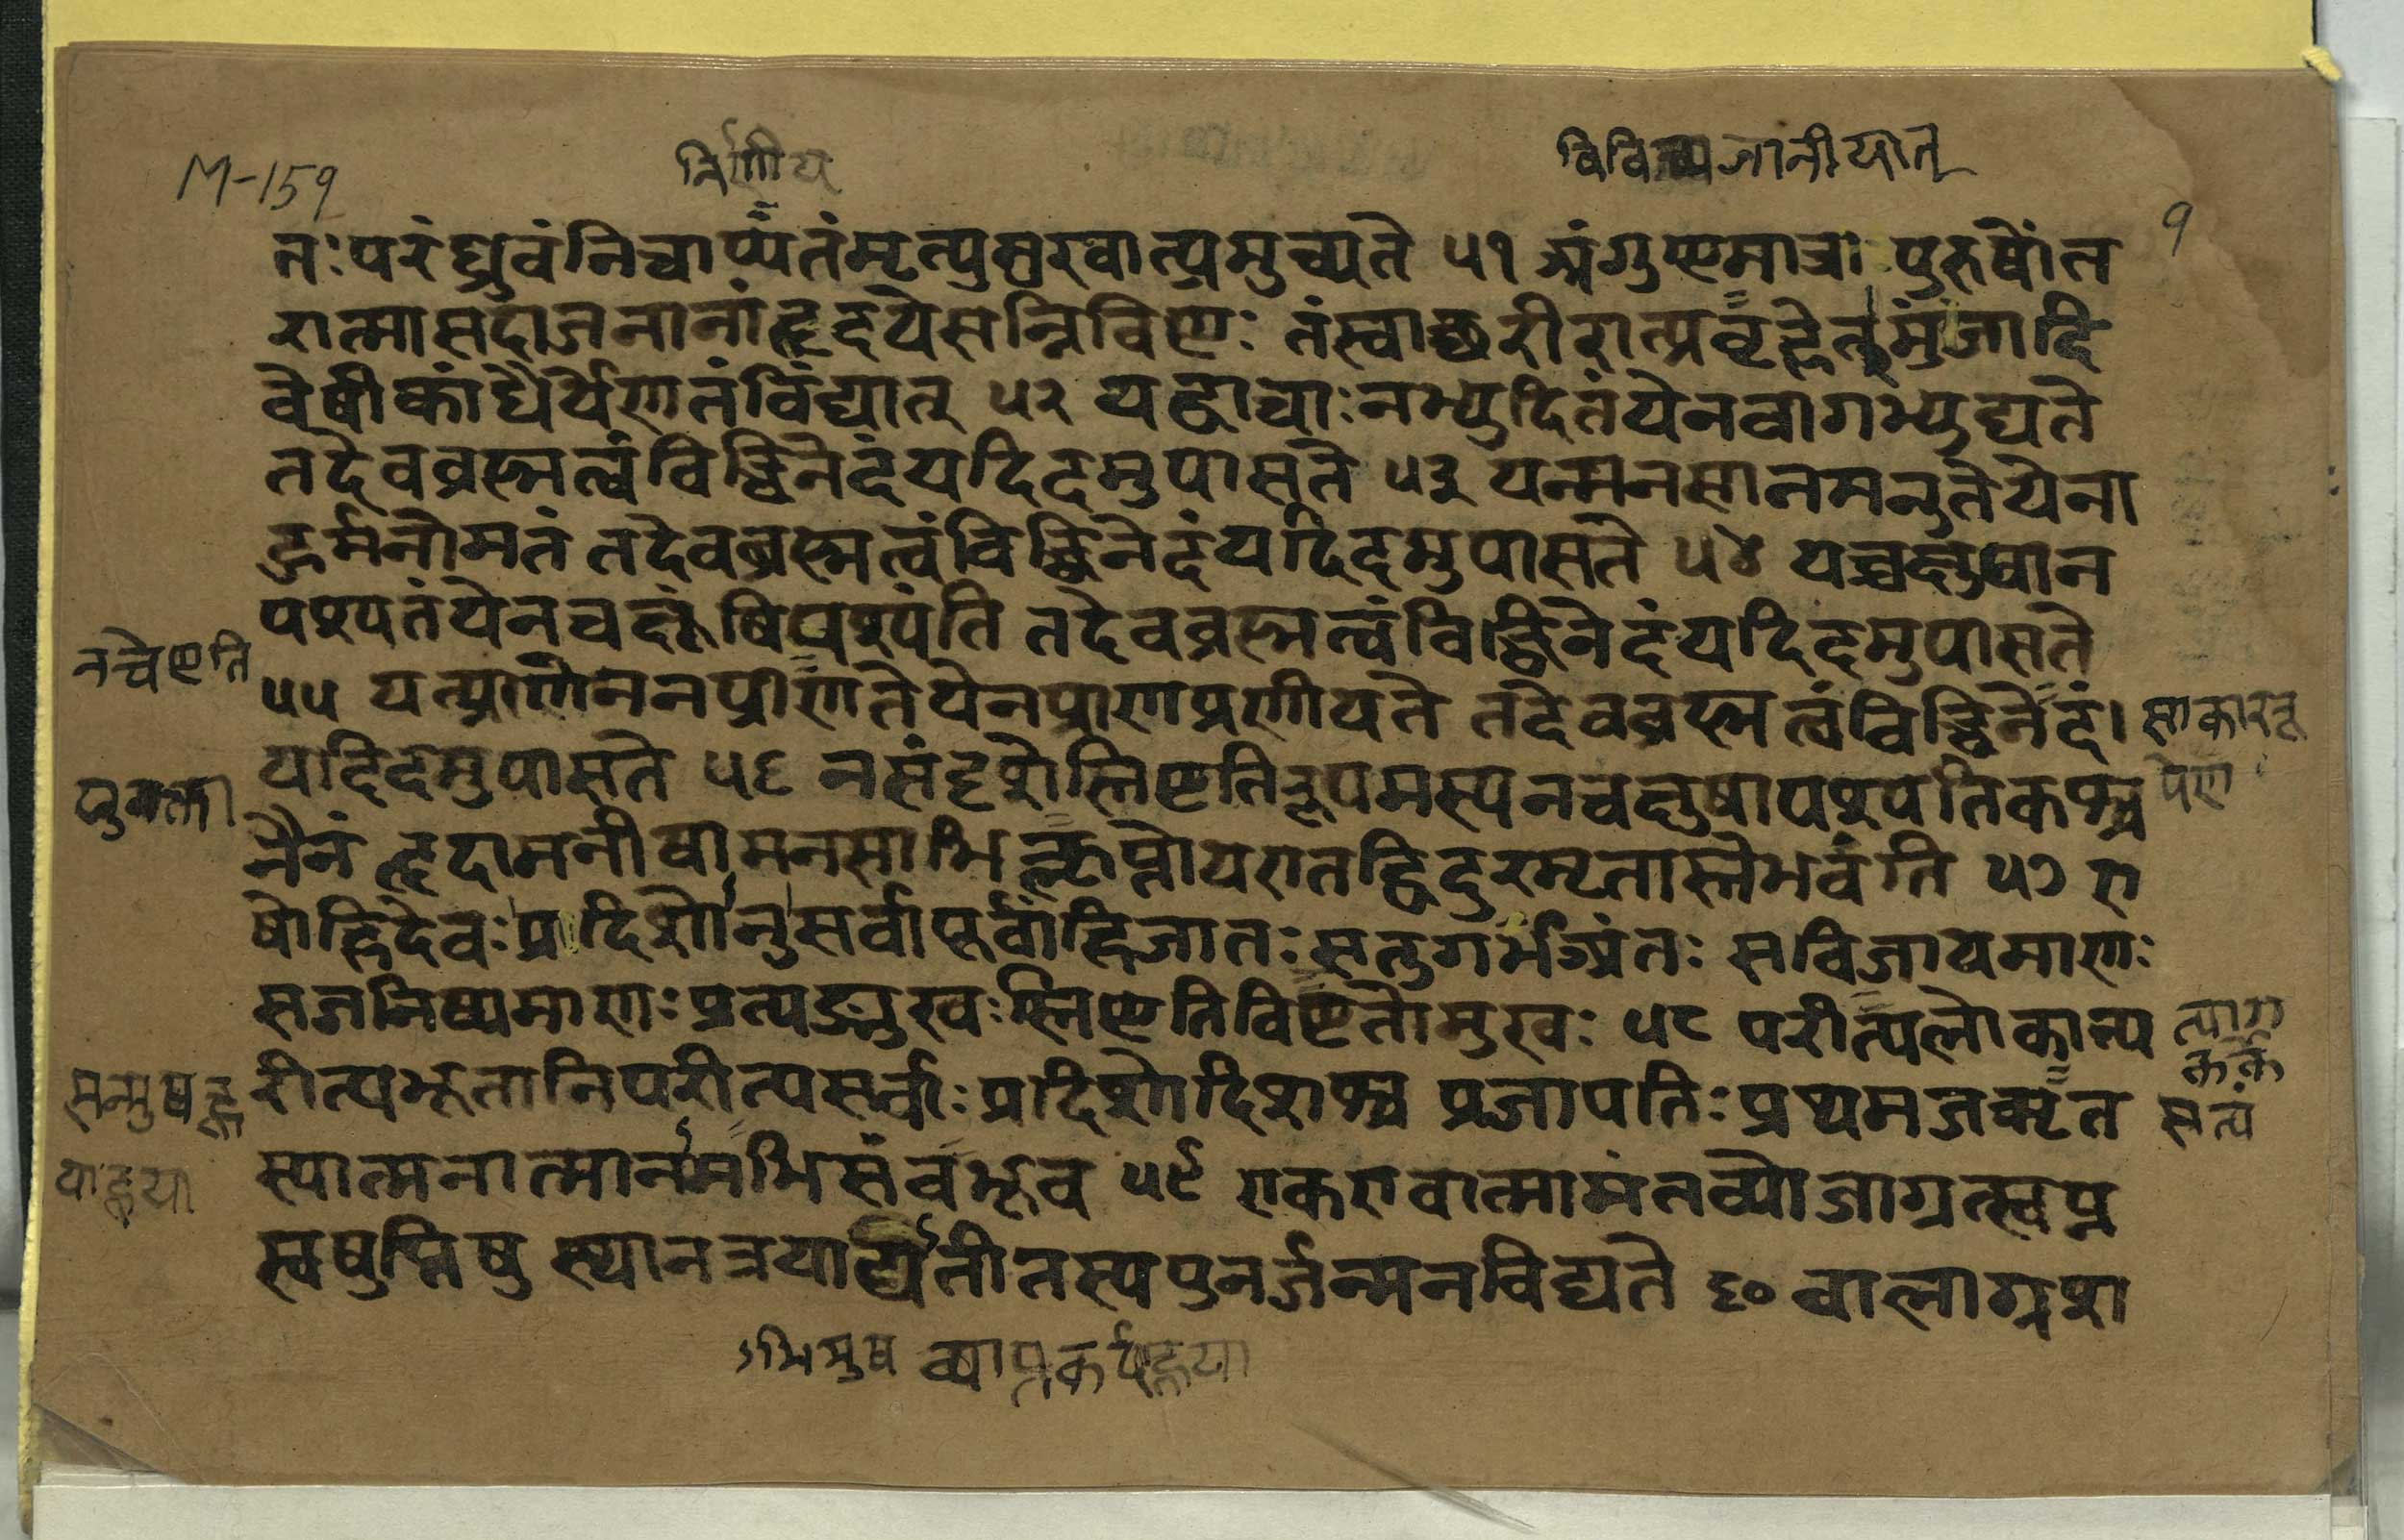 M-159
निर्णीय
विविच्य जानीयात्
9
तः परं ध्रुवं निचाय्य तं मृत्युमुखात्प्रमुच्यते ५१ अंगुष्ठमात्रः पुरुषोंत
रात्मा सदा जनानां हृदये सन्निविष्टः तं स्वाच्छरीरात्प्रवृहेन्मुंजादि
वेषीकां धैर्येण तं विद्यात् ५२ यद्वाचाःनभ्युदितं येन वागभ्युद्यते
तदेव ब्रह्म त्वं विद्धि नेदं यदिदमुपासते ५३ यन्मनसा न मनुते येना
हुर्मनो मतं तदेव ब्रह्म त्वं विद्धि नेदं यदिदमुपासते ५४ यच्चक्षुषा न
पश्यतं येन चक्षूंषि पश्यंति तदेव ब्रह्म त्वं विद्धि नेदं यदिदमुपासते
नचेष्टति
५५ यत्प्राणेन न प्रीणते येन प्राण प्रणीयते तदेव ब्रह्म त्वं विद्धि नेदं।
साकाररू
यदिदमुपासते ५६ न संदृशेस्तिष्ठति रूपमस्य न चक्षुषा पश्यति कश्च
पेण
नैनं हृदा मनीषा मनसाभिक्लृप्तो य एतद्विदुरमृतास्ते भवंति ५७ ए
षो हि देवः प्रदिशोनु सर्वा पूर्वो हि जातः स तु गर्भेअंतः स विजायमाणः
स जनिष्यमाणः प्रत्यङ्मुखःस्तिष्ठति विश्वतोमुखः ५८ परीत्य लोकान्प
त्याग
रीत्य भूतानि परीत्य सर्वाः प्रदिशो दिशश्च प्रजापतिः प्रथमजऋत
सत्यं
स्यात्मनात्मानमभिसंबभूव ५९ एक एवात्मा मंतव्यो जाग्रत्स्वप्न
स्वषुप्तिषु स्थानत्रयाद्यतीतस्य पुनर्जन्म न विद्यते ६० बालाग्रश